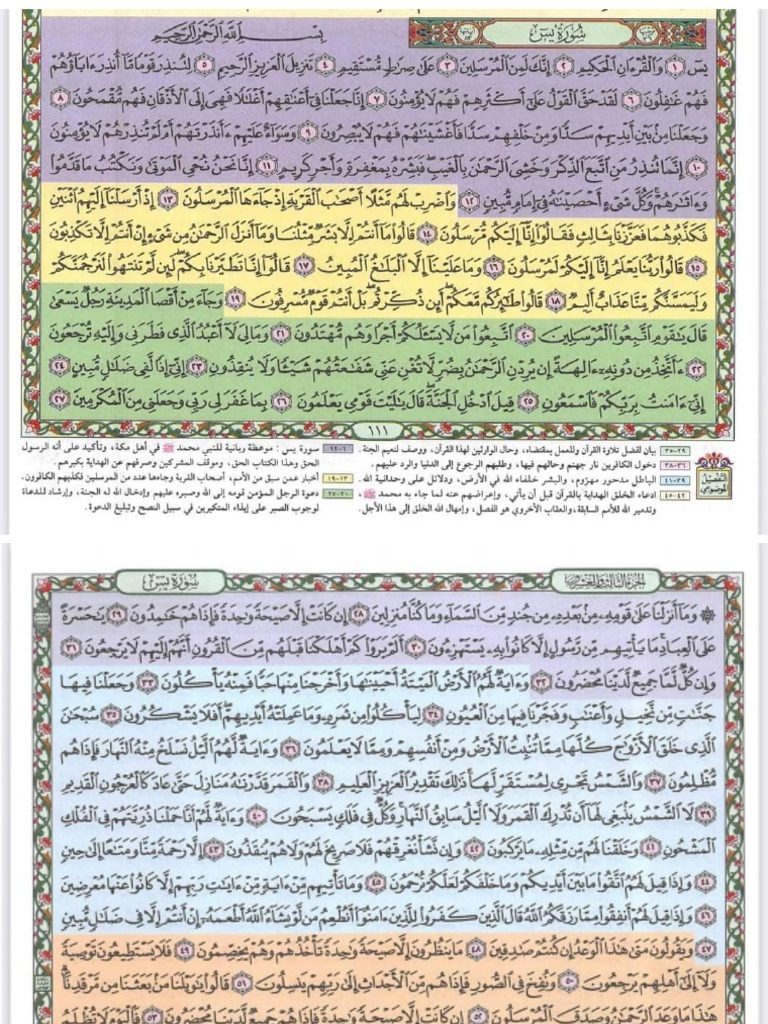 سُورَةُ يسٓ
بِسْمِ ٱللَّهِ ٱلرَّحْمَٰنِ ٱلرَّحِيمِ
يسٓ ١ وَٱلْقُرْءَانِ ٱلْحَكِيمِ ٢ إِنَّكَ لَمِنَ ٱلْمُرْسَلِينَ ٣ عَلَىٰ صِرَٰطٍ مُّسْتَقِيمٍ ٤ تَنزِيلَ ٱلْعَزِيزِ ٱلرَّحِيمِ ٥ لِتُنذِرَ قَوْمًا مَّآ أُنذِرَ ءَابَآؤُهُمْ
فَهُمْ غَٰفِلُونَ ٦ لَقَدْ حَقَّ ٱلْقَوْلُ عَلَىٰٓ أَكْثَرِهِمْ فَهُمْ لَا يُؤْمِنُونَ ٧ إِنَّا جَعَلْنَا فِىٓ أَعْنَٰقِهِمْ أَغْلَٰلًا فَهِىَ إِلَى ٱلْأَذْقَانِ فَهُم مُّقْمَحُونَ ٨
وَجَعَلْنَا مِنۢ بَيْنِ أَيْدِيهِمْ سَدًّا وَمِنْ خَلْفِهِمْ سَدًّا فَأَغْشَيْنَٰهُمْ فَهُمْ لَا يُبْصِرُونَ ٩ وَسَوَآءٌ عَلَيْهِمْ ءَأَنذَرْتَهُمْ أَمْ لَمْ تُنذِرْهُمْ لَا يُؤْمِنُونَ
١٠ إِنَّمَا تُنذِرُ مَنِ ٱتَّبَعَ ٱلذِّكْرَ وَخَشِىَ ٱلرَّحْمَٰنَ بِٱلْغَيْبِ فَبَشِّرْهُ بِمَغْفِرَةٍ وَأَجْرٍ كَرِيمٍ ١١ إِنَّا نَحْنُ نُحْىِ ٱلْمَوْتَىٰ وَنَكْتُبُ مَا قَدَّمُوا۟
وَءَاثَٰرَهُمْ وَكُلَّ شَىْءٍ أَحْصَيْنَٰهُ فِىٓ إِمَامٍ مُّبِينٍ ١٢ وَٱضْرِبْ لَهُم مَّثَلًا أَصْحَٰبَ ٱلْقَرْيَةِ إِذْ جَآءَهَا ٱلْمُرْسَلُونَ ١٣ إِذْ أَرْسَلْنَآ إِلَيْهِمُ ٱثْنَيْنِ
فَكَذَّبُوهُمَا فَعَزَّزْنَا بِثَالِثٍ فَقَالُوٓا۟ إِنَّآ إِلَيْكُم مُّرْسَلُونَ ١٤ قَالُوا۟ مَآ أَنتُمْ إِلَّا بَشَرٌ مِّثْلُنَا وَمَآ أَنزَلَ ٱلرَّحْمَٰنُ مِن شَىْءٍ إِنْ أَنتُمْ إِلَّا تَكْذِبُونَ
١٥ قَالُوا۟ رَبُّنَا يَعْلَمُ إِنَّآ إِلَيْكُمْ لَمُرْسَلُونَ ١٦ وَمَا عَلَيْنَآ إِلَّا ٱلْبَلَٰغُ ٱلْمُبِينُ ١٧ قَالُوٓا۟ إِنَّا تَطَيَّرْنَا بِكُمْ لَئِن لَّمْ تَنتَهُوا۟ لَنَرْجُمَنَّكُمْ
وَلَيَمَسَّنَّكُم مِّنَّا عَذَابٌ أَلِيمٌ ١٨ قَالُوا۟ طَٰٓئِرُكُم مَّعَكُمْ أَئِن ذُكِّرْتُم بَلْ أَنتُمْ قَوْمٌ مُّسْرِفُونَ ١٩ وَجَآءَ مِنْ أَقْصَا ٱلْمَدِينَةِ رَجُلٌ يَسْعَىٰ
قَالَ يَٰقَوْمِ ٱتَّبِعُوا۟ ٱلْمُرْسَلِينَ ٢٠ ٱتَّبِعُوا۟ مَن لَّا يَسْـَٔلُكُمْ أَجْرًا وَهُم مُّهْتَدُونَ ٢١ وَمَا لِىَ لَآ أَعْبُدُ ٱلَّذِى فَطَرَنِى وَإِلَيْهِ تُرْجَعُونَ
٢٢ ءَأَتَّخِذُ مِن دُونِهِۦٓ ءَالِهَةً إِن يُرِدْنِ ٱلرَّحْمَٰنُ بِضُرٍّ لَّا تُغْنِ عَنِّى شَفَٰعَتُهُمْ شَيْـًٔا وَلَا يُنقِذُونِ ٢٣ إِنِّىٓ إِذًا لَّفِى ضَلَٰلٍ مُّبِينٍ ٢٤
إِنِّىٓ ءَامَنتُ بِرَبِّكُمْ فَٱسْمَعُونِ ٢٥ قِيلَ ٱدْخُلِ ٱلْجَنَّةَ قَالَ يَٰلَيْتَ قَوْمِى يَعْلَمُونَ ٢٦ بِمَا غَفَرَ لِى رَبِّى وَجَعَلَنِى مِنَ ٱلْمُكْرَمِينَ ٢٧
١١١
التفصيل الموضوعي
٢٩-٣٥ بيان لفضل تلاوة القرآن وللعمل بمقتضاه، وحال الوارثين لهذا القرآن، ووصف لنعيم الجنة.
٣٦-٣٨ دخول الكافرين نار جهنم وحالهم فيها، وطلبهم الرجوع إلى الدنيا والرد عليهم.
٣٩-٤١ الباطل مدحور مهزوم، والبشر خلفاء الله في الأرض، ودلائل على وحدانية الله.
٤٢-٤٥ ادعاء الخلق الهداية بالقرآن قبل أن يأتي، وإعراضهم عنه لما جاء به محمد ﷺ،
وتدمير الله للأمم السابقة، والعقاب الأخروي هو الفصل، وإمهال الله الخلق إلى هذا الأجل.
١-١٢ سورة يس: موعظة ربانية للنبي محمد ﷺ في أهل مكة، وتأكيد على أنه الرسول
الحق وهذا الكتاب الحق، وموقف المشركين وصرفهم عن الهداية بكبرهم.
١٣-١٩ أخبار عمن سبق من الأمم، أصحاب القرية وجاءها عدد من المرسلين فكذبهم الكافرون.
٢٠-٢٧ دعوة الرجل المؤمن قومه إلى الله وصبره عليهم وإدخال الله له الجنة، وإرشاد للدعاة
لوجوب الصبر على إيذاء المتكبرين في سبيل النصح وتبليغ الدعوة.
الجزء الثالث والعشرون
سُورَةُ يسٓ
وَمَآ أَنزَلْنَا عَلَىٰ قَوْمِهِۦ مِنۢ بَعْدِهِۦ مِن جُندٍ مِّنَ ٱلسَّمَآءِ وَمَا كُنَّا مُنزِلِينَ ٢٨ إِن كَانَتْ إِلَّا صَيْحَةً وَٰحِدَةً فَإِذَا هُمْ خَٰمِدُونَ ٢٩ يَٰحَسْرَةً
عَلَى ٱلْعِبَادِ مَا يَأْتِيهِم مِّن رَّسُولٍ إِلَّا كَانُوا۟ بِهِۦ يَسْتَهْزِءُونَ ٣٠ أَلَمْ يَرَوْا۟ كَمْ أَهْلَكْنَا قَبْلَهُم مِّنَ ٱلْقُرُونِ أَنَّهُمْ إِلَيْهِمْ لَا يَرْجِعُونَ ٣١
وَإِن كُلٌّ لَّمَّا جَمِيعٌ لَّدَيْنَا مُحْضَرُونَ ٣٢ وَءَايَةٌ لَّهُمُ ٱلْأَرْضُ ٱلْمَيْتَةُ أَحْيَيْنَٰهَا وَأَخْرَجْنَا مِنْهَا حَبًّا فَمِنْهُ يَأْكُلُونَ ٣٣ وَجَعَلْنَا فِيهَا
جَنَّٰتٍ مِّن نَّخِيلٍ وَأَعْنَٰبٍ وَفَجَّرْنَا فِيهَا مِنَ ٱلْعُيُونِ ٣٤ لِيَأْكُلُوا۟ مِن ثَمَرِهِۦ وَمَا عَمِلَتْهُ أَيْدِيهِمْ أَفَلَا يَشْكُرُونَ ٣٥ سُبْحَٰنَ
ٱلَّذِى خَلَقَ ٱلْأَزْوَٰجَ كُلَّهَا مِمَّا تُنۢبِتُ ٱلْأَرْضُ وَمِنْ أَنفُسِهِمْ وَمِمَّا لَا يَعْلَمُونَ ٣٦ وَءَايَةٌ لَّهُمُ ٱلَّيْلُ نَسْلَخُ مِنْهُ ٱلنَّهَارَ فَإِذَا هُم
مُّظْلِمُونَ ٣٧ وَٱلشَّمْسُ تَجْرِى لِمُسْتَقَرٍّ لَّهَا ذَٰلِكَ تَقْدِيرُ ٱلْعَزِيزِ ٱلْعَلِيمِ ٣٨ وَٱلْقَمَرَ قَدَّرْنَٰهُ مَنَازِلَ حَتَّىٰ عَادَ كَٱلْعُرْجُونِ ٱلْقَدِيمِ
٣٩ لَا ٱلشَّمْسُ يَنۢبَغِى لَهَآ أَن تُدْرِكَ ٱلْقَمَرَ وَلَا ٱلَّيْلُ سَابِقُ ٱلنَّهَارِ وَكُلٌّ فِى فَلَكٍ يَسْبَحُونَ ٤٠ وَءَايَةٌ لَّهُمْ أَنَّا حَمَلْنَا ذُرِّيَّتَهُمْ فِى ٱلْفُلْكِ
ٱلْمَشْحُونِ ٤١ وَخَلَقْنَا لَهُم مِّن مِّثْلِهِۦ مَا يَرْكَبُونَ ٤٢ وَإِن نَّشَأْ نُغْرِقْهُمْ فَلَا صَرِيخَ لَهُمْ وَلَا هُمْ يُنقَذُونَ ٤٣ إِلَّا رَحْمَةً مِّنَّا وَمَتَٰعًا إِلَىٰ حِينٍ
٤٤ وَإِذَا قِيلَ لَهُمُ ٱتَّقُوا۟ مَا بَيْنَ أَيْدِيكُمْ وَمَا خَلْفَكُمْ لَعَلَّكُمْ تُرْحَمُونَ ٤٥ وَمَا تَأْتِيهِم مِّنْ ءَايَةٍ مِّنْ ءَايَٰتِ رَبِّهِمْ إِلَّا كَانُوا۟ عَنْهَا مُعْرِضِينَ
٤٦ وَإِذَا قِيلَ لَهُمْ أَنفِقُوا۟ مِمَّا رَزَقَكُمُ ٱللَّهُ قَالَ ٱلَّذِينَ كَفَرُوا۟ لِلَّذِينَ ءَامَنُوٓا۟ أَنُطْعِمُ مَن لَّوْ يَشَآءُ ٱللَّهُ أَطْعَمَهُۥٓ إِنْ أَنتُمْ إِلَّا فِى ضَلَٰلٍ مُّبِينٍ
٤٧ وَيَقُولُونَ مَتَىٰ هَٰذَا ٱلْوَعْدُ إِن كُنتُمْ صَٰدِقِينَ ٤٨ مَا يَنظُرُونَ إِلَّا صَيْحَةً وَٰحِدَةً تَأْخُذُهُمْ وَهُمْ يَخِصِّمُونَ ٤٩ فَلَا يَسْتَطِيعُونَ تَوْصِيَةً
وَلَآ إِلَىٰٓ أَهْلِهِمْ يَرْجِعُونَ ٥٠ وَنُفِخَ فِى ٱلصُّورِ فَإِذَا هُم مِّنَ ٱلْأَجْدَاثِ إِلَىٰ رَبِّهِمْ يَنسِلُونَ ٥١ قَالُوا۟ يَٰوَيْلَنَا مَنۢ بَعَثَنَا مِن مَّرْقَدِنَا
هَٰذَا مَا وَعَدَ ٱلرَّحْمَٰنُ وَصَدَقَ ٱلْمُرْسَلُونَ ٥٢ إِن كَانَتْ إِلَّا صَيْحَةً وَٰحِدَةً فَإِذَا هُمْ جَمِيعٌ لَّدَيْنَا مُحْضَرُونَ ٥٣ فَٱلْيَوْمَ لَا تُظْلَمُ